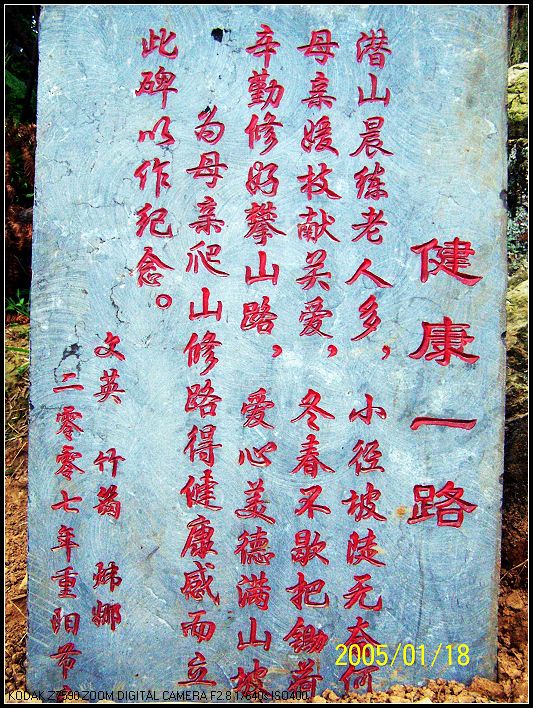 健康一路
潜山晨练老人多，小径坡陡无奈何
母亲媛枝献关爱，冬春不歇把锄荷
辛勤修好攀山路，爱心美德满山坡
为母亲爬山修路得健康感而立
此碑以作纪念。
文英 竹筠 炜娜
二零零七年重阳节
2005/01/18
KODAK Z7590 ZOOM DIGITAL CAMERA F2.8 1/640s ISO400